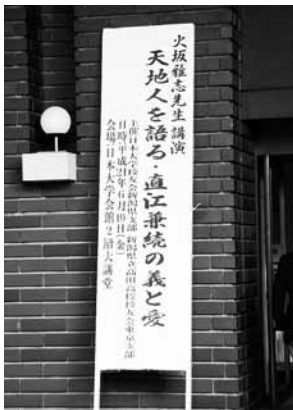 火坂雅志先生講演
天地人を語る・直江兼続の義と愛
主催:日本大学校友会新潟県支部 新潟県立高田高校校友会東京支部
日時:平成21年6月19日(金)
会場:日本大学会館2階大講堂